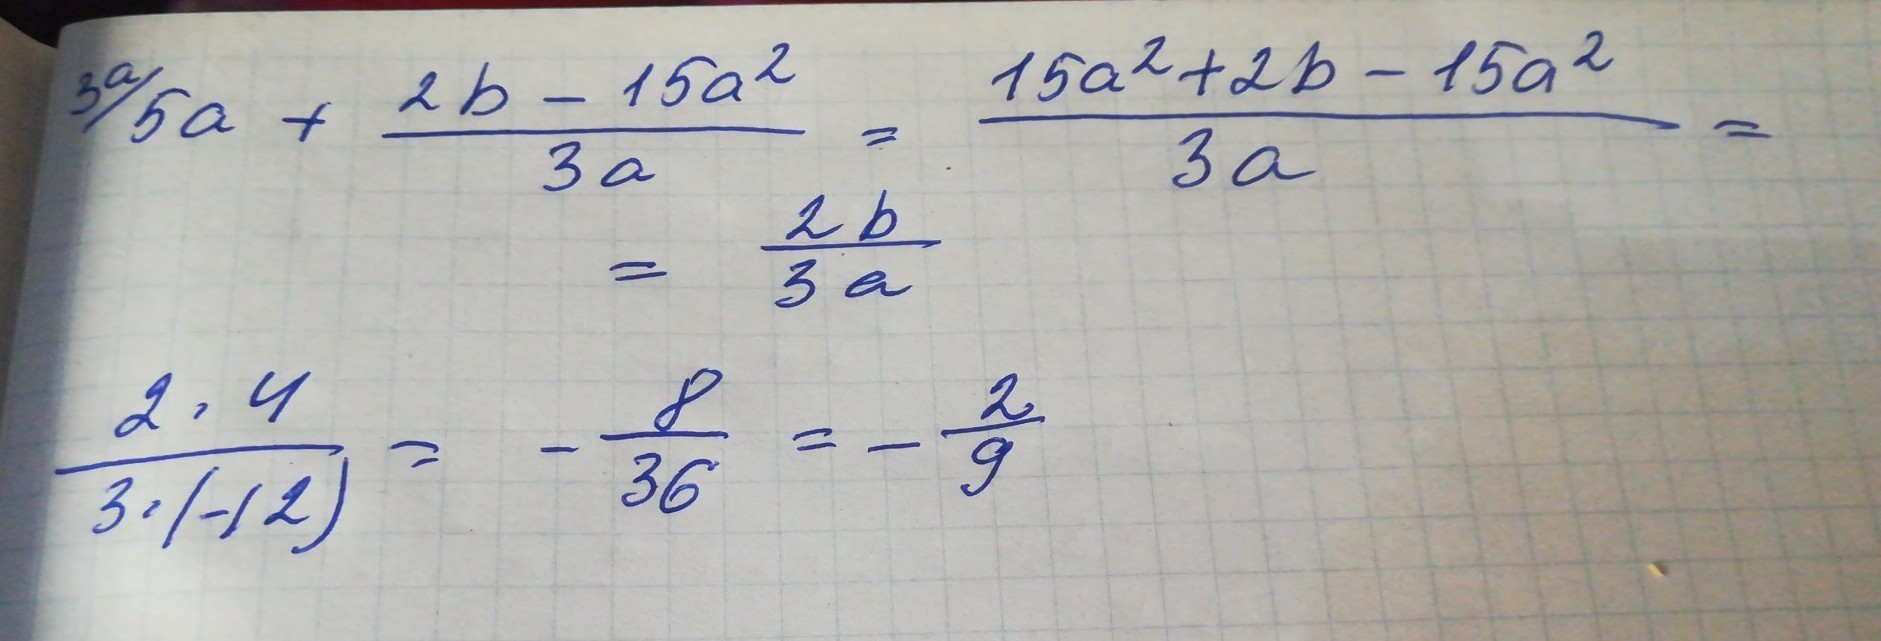 3a/5a + (2b - 15a²)/(3a) = (15a² + 2b - 15a²)/(3a) =
= (2b)/(3a)
(2 · 4)/(3 · (-12)) = - 8/36 = - 2/9